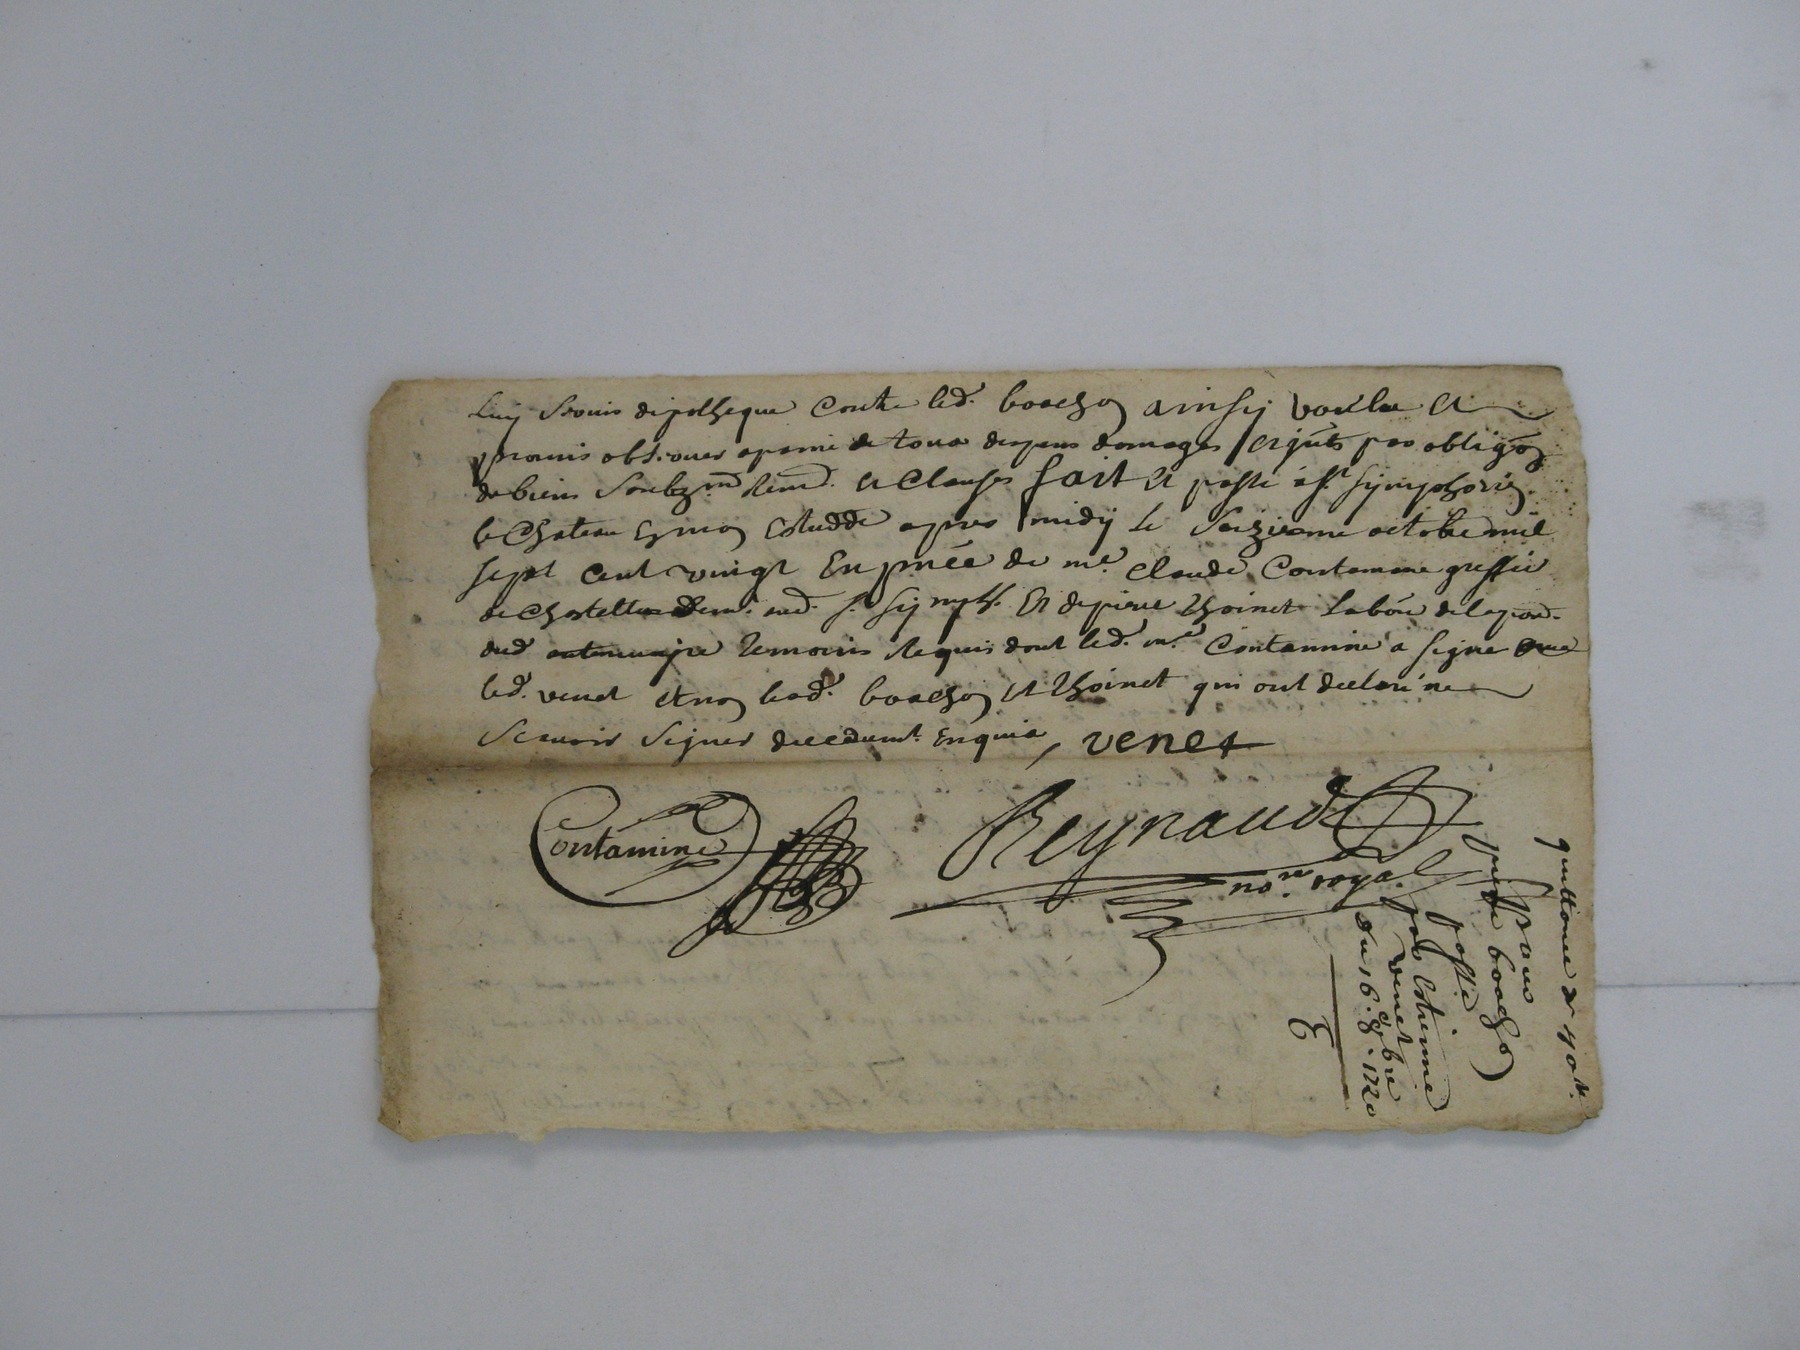 luy servir dipotheque contre led. boacho ainsy voulu et
promis observer a peine de tous despens domages par obligõn
de biens soubzmõn et clauses fait et passé à st symphorien
le Chateau après midy le seizieme octobre mil
sept cent vingt En pñce de me. Claude Contamine greffier
de Chatellus demt. aud. st. symph. et de pierre thoinet labõr de la
dud. temoins requis dont led. me. Contamine a signé avec
led. venet et non lesd. boacho et thoinet qui ont declaré ne
scavoir signer enquis, venet
Contamine
Reynaud
nore. royal
quittance de 40 lt.
pour
boacho
passé
par Estienne
venet
du 16e. 8bre
1720